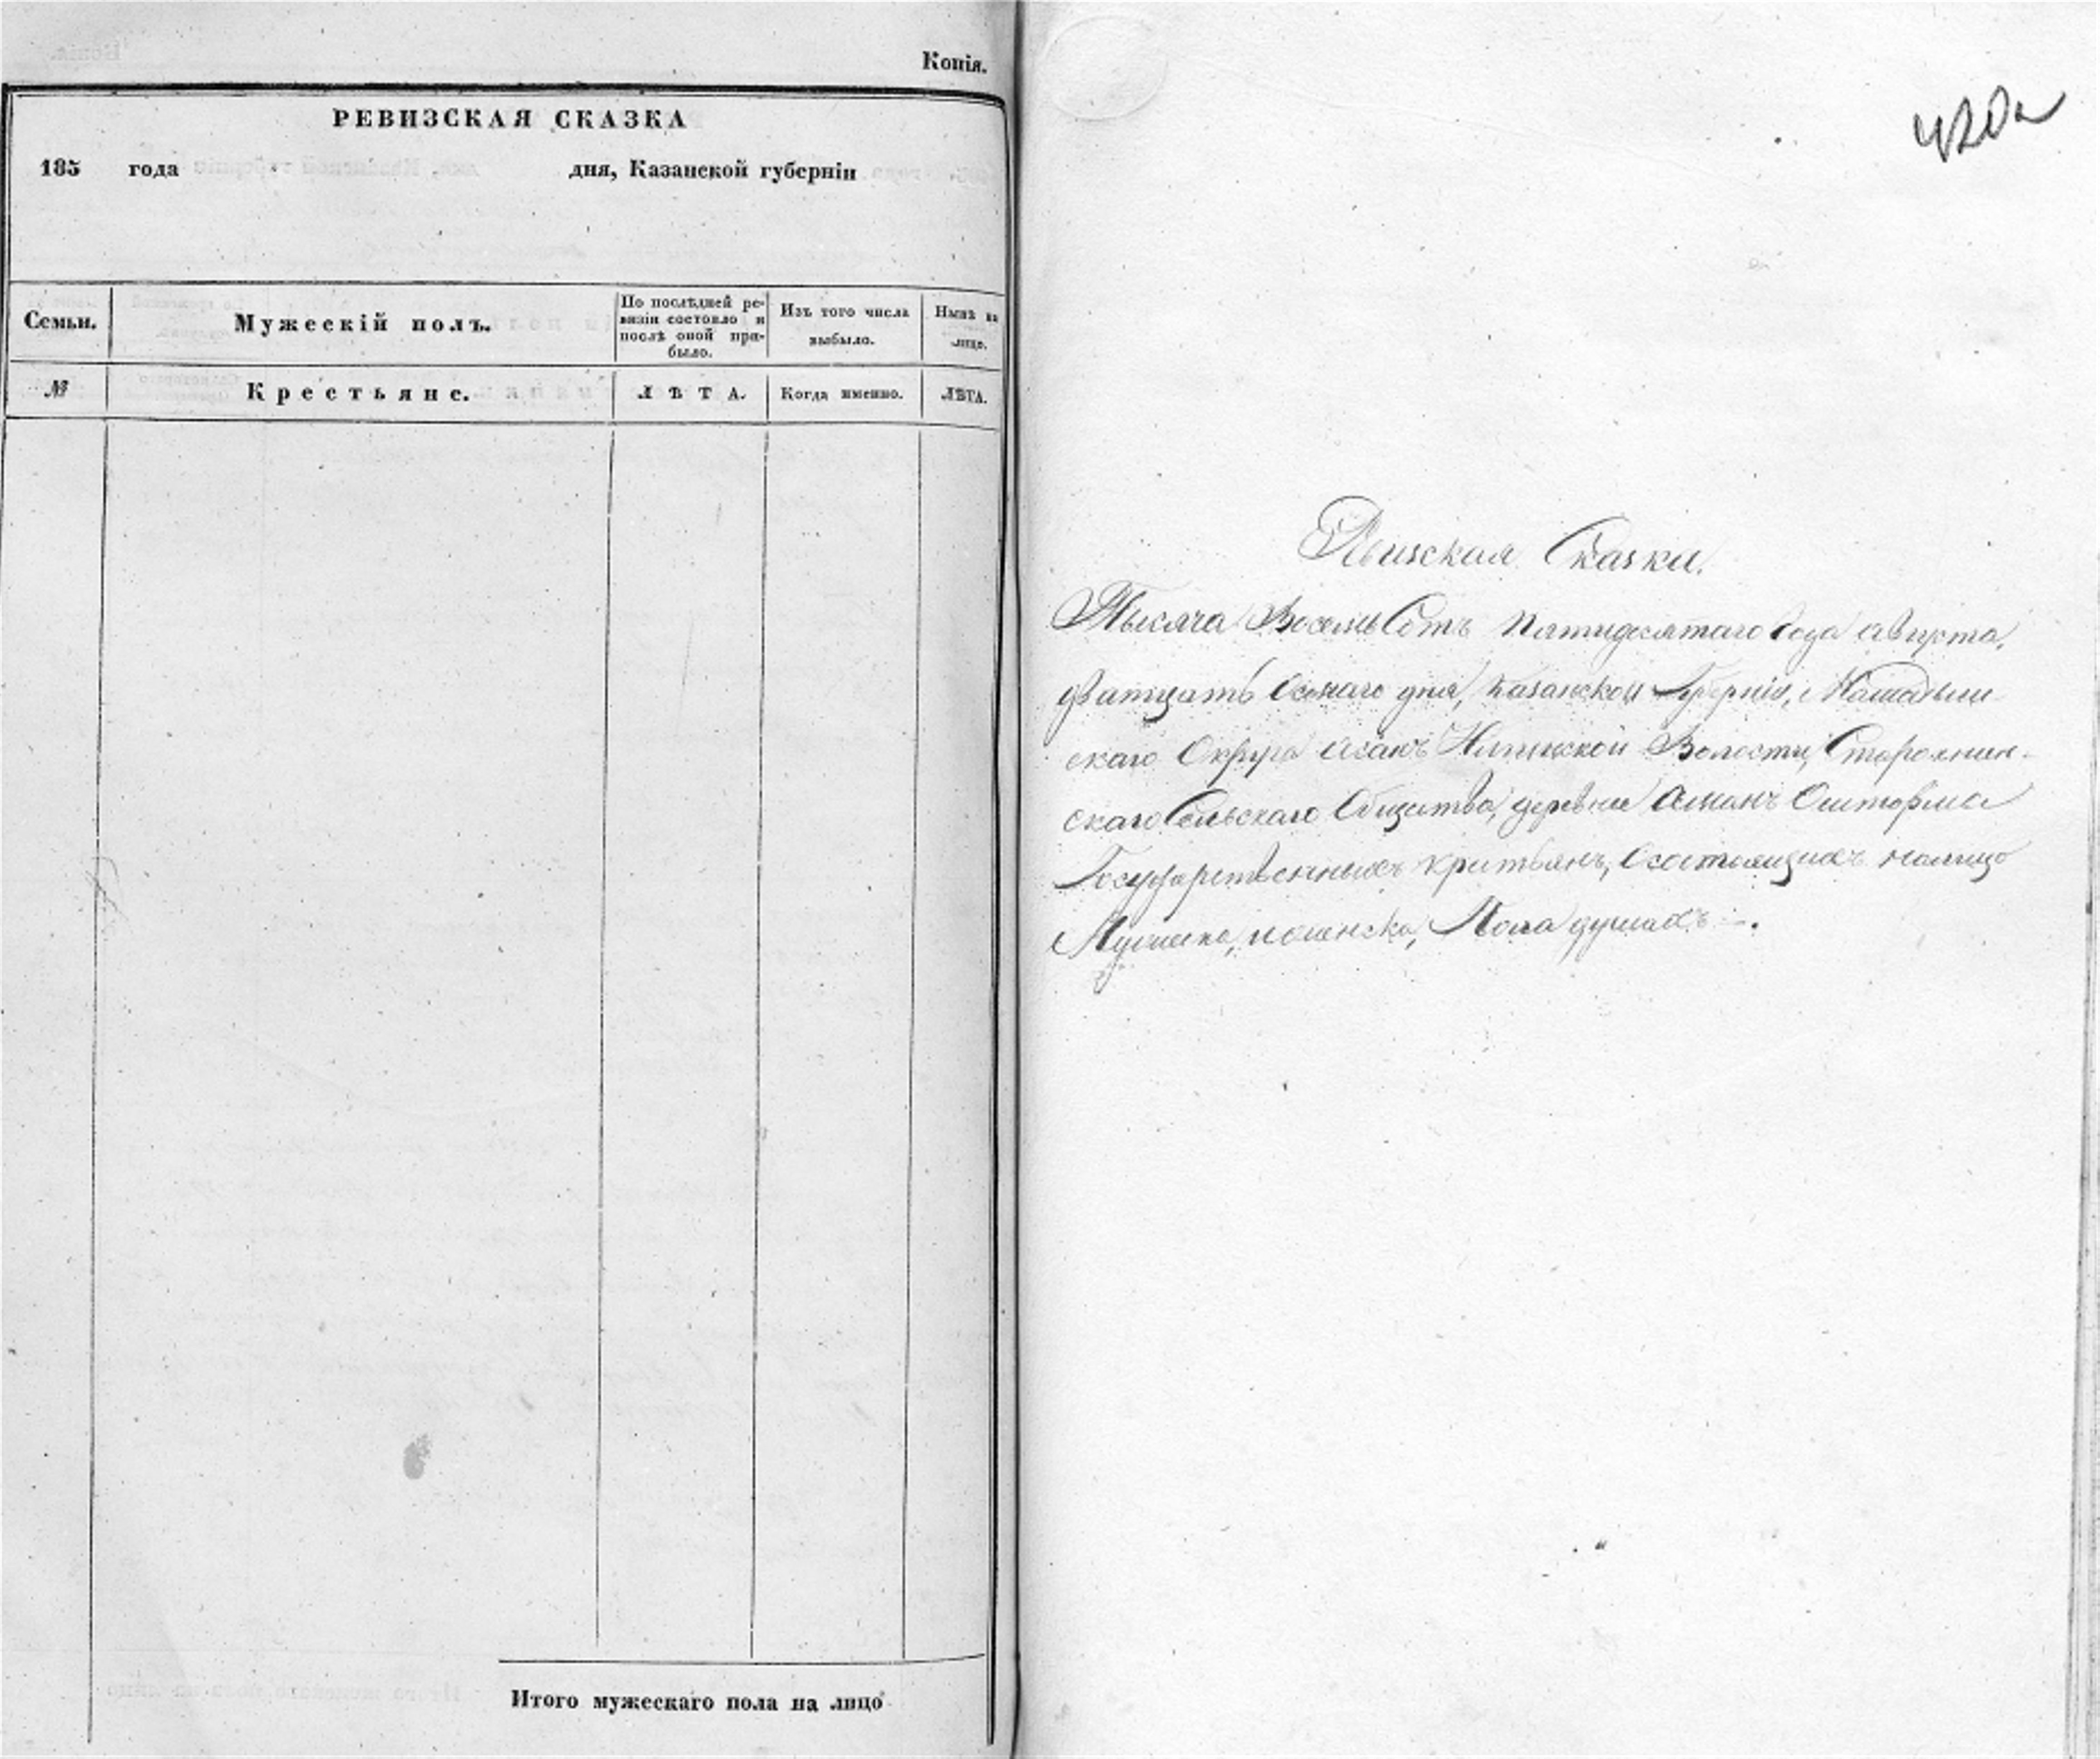 Копія.
РЕВИЗСКАЯ СКАЗКА
185 года дня, Казанской губерніи
Семьи.
Мужескій полъ.
По послѣдней ре-
визіи состояло и
послѣ оной при-
было.
Изъ того числа
выбыло.
Нынѣ на
лицо.
№
Крестьяне.
ЛѢТА.
Когда именно.
ЛѢТА.
Итого мужескаго пола на лицо
420а
Ревизская Сказки.
Тысяча Восемь Сотъ Пятидесятаго Года Августа,
дватцать Осмаго дня, Казанской Губерніи, Мамадыш
скаго Округа Асанъ Волости,
скаго Сельскаго Общества, деревне Ошторма
Государственныхъ крестьянъ, Состоящихъ налицо
Мужеска, и женска, Пола душахъ.